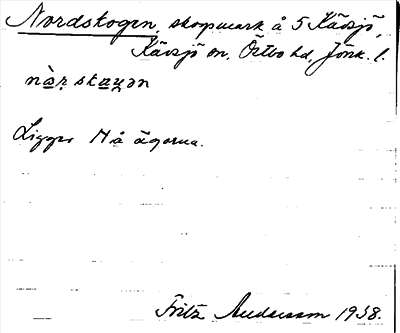 Nordskogen, skogsmark å 5 Kävsjö,
Kävsjö sn, Östbo hd, Jönk. l.
nàr̥skau̥ən
Ligger N å ägorna.
Fritz Andersson 1938.